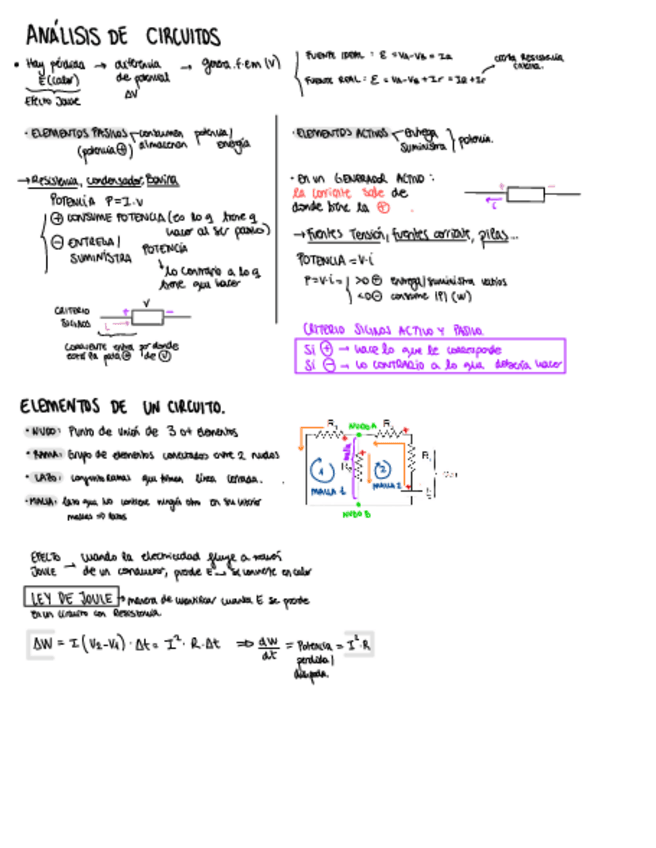 ANÁLISIS DE CIRCUITOS
• Hay pérdida → diferencia → genera. f.em (V)
E (calor) de potencial
Efecto Joule ΔV
FUENTE IDEAL: E = VA-VB = IR
FUENTE REAL: E = VA-VB + Ir = IR + Ir
cierta Resistencia interna.
• ELEMENTOS PASIVOS consumen potencia/
(potencia ⊕) almacenan energía
→ Resistencia, condensador, Bobina
POTENCIA P=I.V
⊕ CONSUME POTENCIA (es lo q tiene q
hacer al ser pasivo)
⊖ ENTREGA/
SUMINISTRA POTENCIA
lo contrario a lo q
tiene que hacer
CRITERIO
SIGNOS
+ V -
i →
Corriente entra por donde
está la pata ⊕ de V
• ELEMENTOS ACTIVOS Entrega
Suministra } potencia.
• En un GENERADOR ACTIVO:
la corriente sale de
donde tiene la ⊕
+ -
← i
→ Fuentes Tensión, fuentes corriente, pilas...
POTENCIA = V·i
P=V·i = >0 ⊕ entrega/suministra vatios
<0 ⊖ consume |P| (W)
CRITERIO SIGNOS ACTIVO Y PASIVO
Si ⊕ → hace lo que le corresponde
Si ⊖ → lo CONTRARIO a lo que debería hacer
ELEMENTOS DE UN CIRCUITO.
• NUDO: Punto de unión de 3 o + elementos
• RAMA: Grupo de elementos conectados entre 2 nudos
• LAZO: conjunto Ramas que forman línea cerrada.
• MALLA: lazo que no contiene ningún otro en su interior
mallas => lazos
NUDO A
1
MALLA 1
2
MALLA 2
NUDO B
EFECTO
JOULE → cuando la electricidad fluye a través
de un conductor, pierde E → se convierte en calor
LEY DE JOULE → manera de cuantificar cuanta E se pierde
en un circuito con Resistencia
ΔW = I (V2-V1) · Δt = I² · R · Δt => dW/dt = Potencia = I²·R
perdida/
disipada.